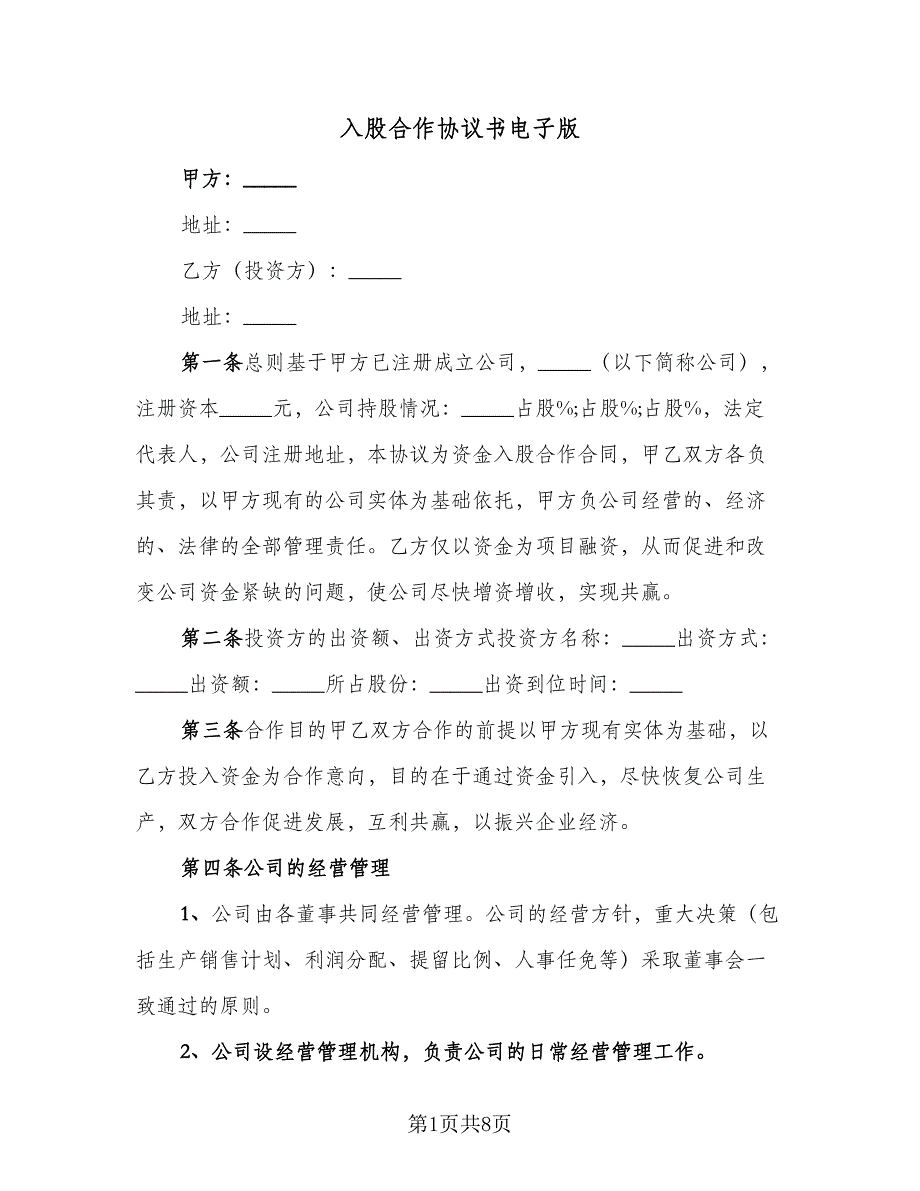 入股合作协议书电子版
甲方：_____
地址：_____
乙方（投资方）：_____
地址：_____
第一条总则基于甲方已注册成立公司，_____（以下简称公司），
注册资本_____元，公司持股情况：_____占股%;占股%;占股%，法定
代表人，公司注册地址，本协议为资金入股合作合同，甲乙双方各负
其责，以甲方现有的公司实体为基础依托，甲方负公司经营的、经济
的、法律的全部管理责任。乙方仅以资金为项目融资，从而促进和改
变公司资金紧缺的问题，使公司尽快增资增收，实现共赢。
第二条投资方的出资额、出资方式投资方名称：_____出资方式：
_____出资额：_____所占股份：_____出资到位时间：_____
第三条合作目的甲乙双方合作的前提以甲方现有实体为基础，以
乙方投入资金为合作意向，目的在于通过资金引入，尽快恢复公司生
产，双方合作促进发展，互利共赢，以振兴企业经济。
第四条公司的经营管理
1、公司由各董事共同经营管理。公司的经营方针，重大决策（包
括生产销售计划、利润分配、提留比例、人事任免等）采取董事会一
致通过的原则。
2、公司设经营管理机构，负责公司的日常经营管理工作。
第1页共8页